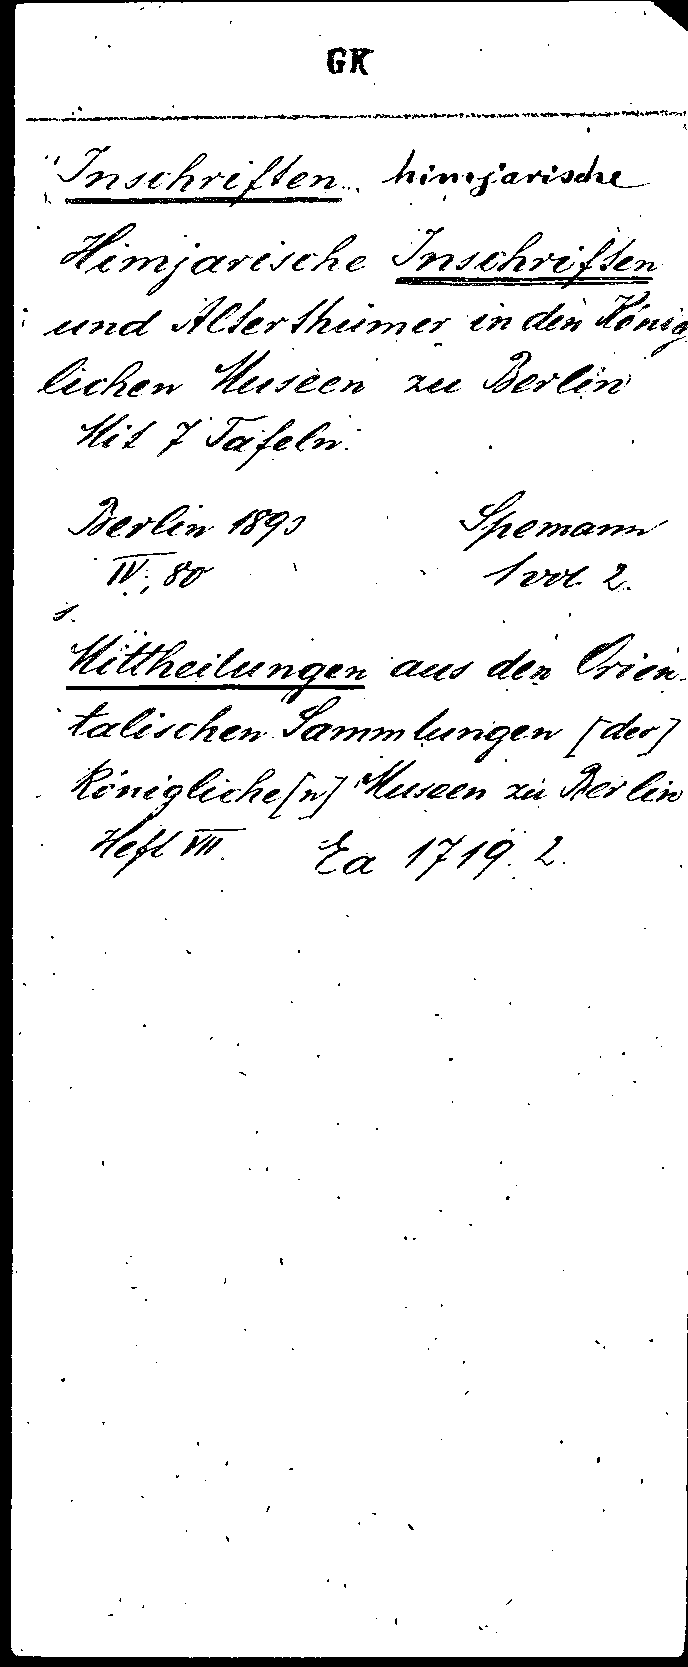 GK
Inschriften himjarische
Himjarische Inschriften
und Alterthümer in den König
lichen Museen zu Berlin
Mit 7 Tafeln.
Berlin 1893 Spemann
IV, 80 1 vol. 2.
s.
Mittheilungen aus den Orien-
talischen Sammlungen [der]
Königliche[n] Museen zu Berlin
Heft VIII. Ea 1719. 2.